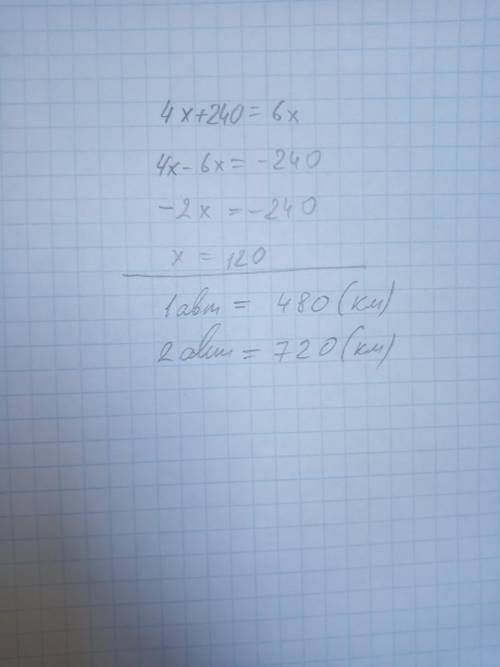 4x+240=6x
4x-6x=-240
-2x=-240
x=120
1авт = 480(км)
2авт = 720(км)